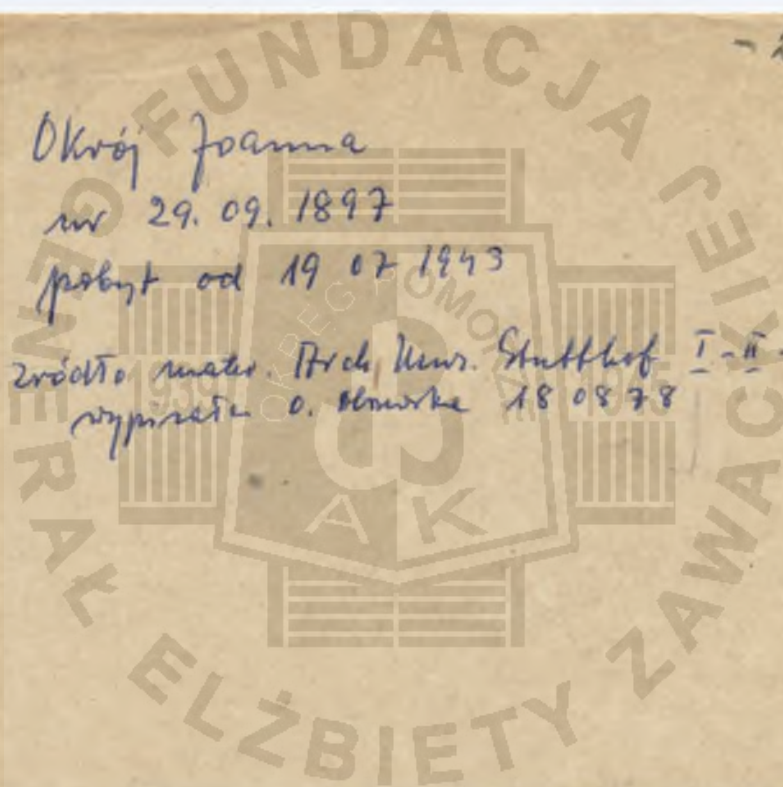 Okrój Joanna
ur 29. 09. 1897
pobyt od 19 07 1943
źródło mater. Arch. Muz. Stutthof I-II-
wypisała O. 18 08 78
FUNDACJA
GENERAŁ ELŻBIETY ZAWACKIEJ
OKRĘG POMORZE
AK